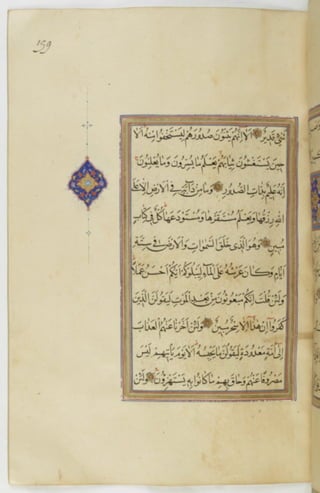 159
شيء قدير الا انهم يثنون صدورهم ليستخفوا منه الا
حين يستغشون ثيابهم يعلم ما يسرون وما يعلنون
انه عليم بذات الصدور وما من دابة في الارض الا على
الله رزقها ويعلم مستقرها ومستودعها كل في كتاب
مبين وهو الذي خلق السموات والارض في ستة
ايام وكان عرشه على الماء ليبلوكم ايكم احسن عملا
ولئن قلت انكم مبعوثون من بعد الموت ليقولن الذين
كفروا ان هذا الا سحر مبين ولئن اخرنا عنهم العذاب
الى امة معدودة ليقولن ما يحبسه الا يوم ياتيهم ليس
مصروفا عنهم وحاق بهم ما كانوا به يستهزؤن ولئن